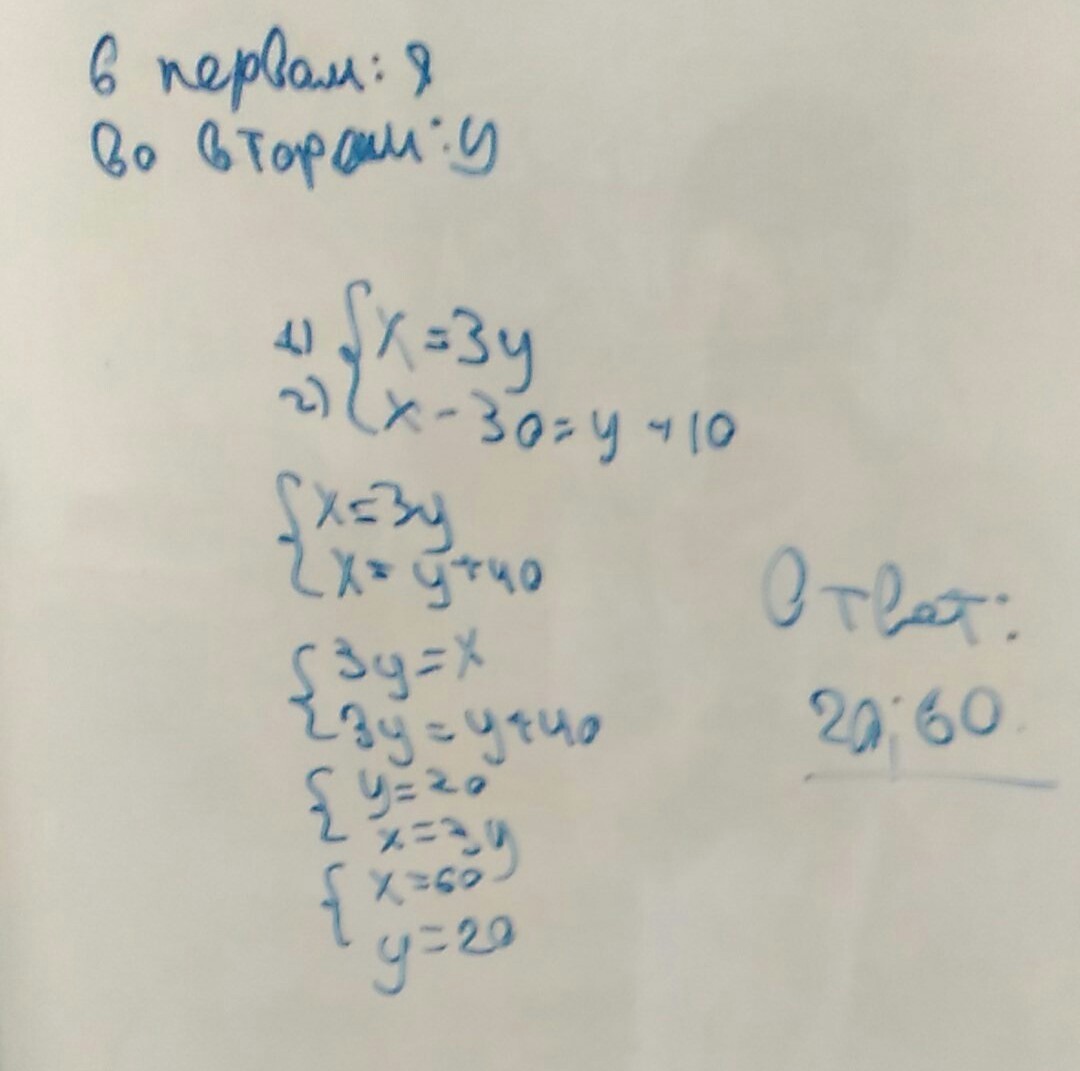 в первом: x
во втором: y
1) { x = 3y
2) { x - 30 = y + 10
{ x = 3y
{ x = y + 40
{ 3y = x
{ 3y = y + 40
{ y = 20
x = 3y
{ x = 60
y = 20
Ответ:
20; 60